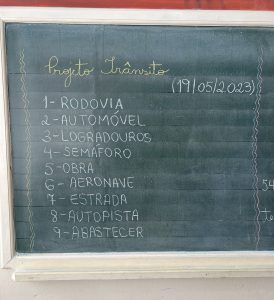 Projeto Trânsito
(19/05/2023)
1-RODOVIA
2-AUTOMÓVEL
3-LOGRADOUROS
4-SEMÁFORO
5-OBRA
6-AERONAVE
7-ESTRADA
8-AUTOPISTA
9-ABASTECER
54
te